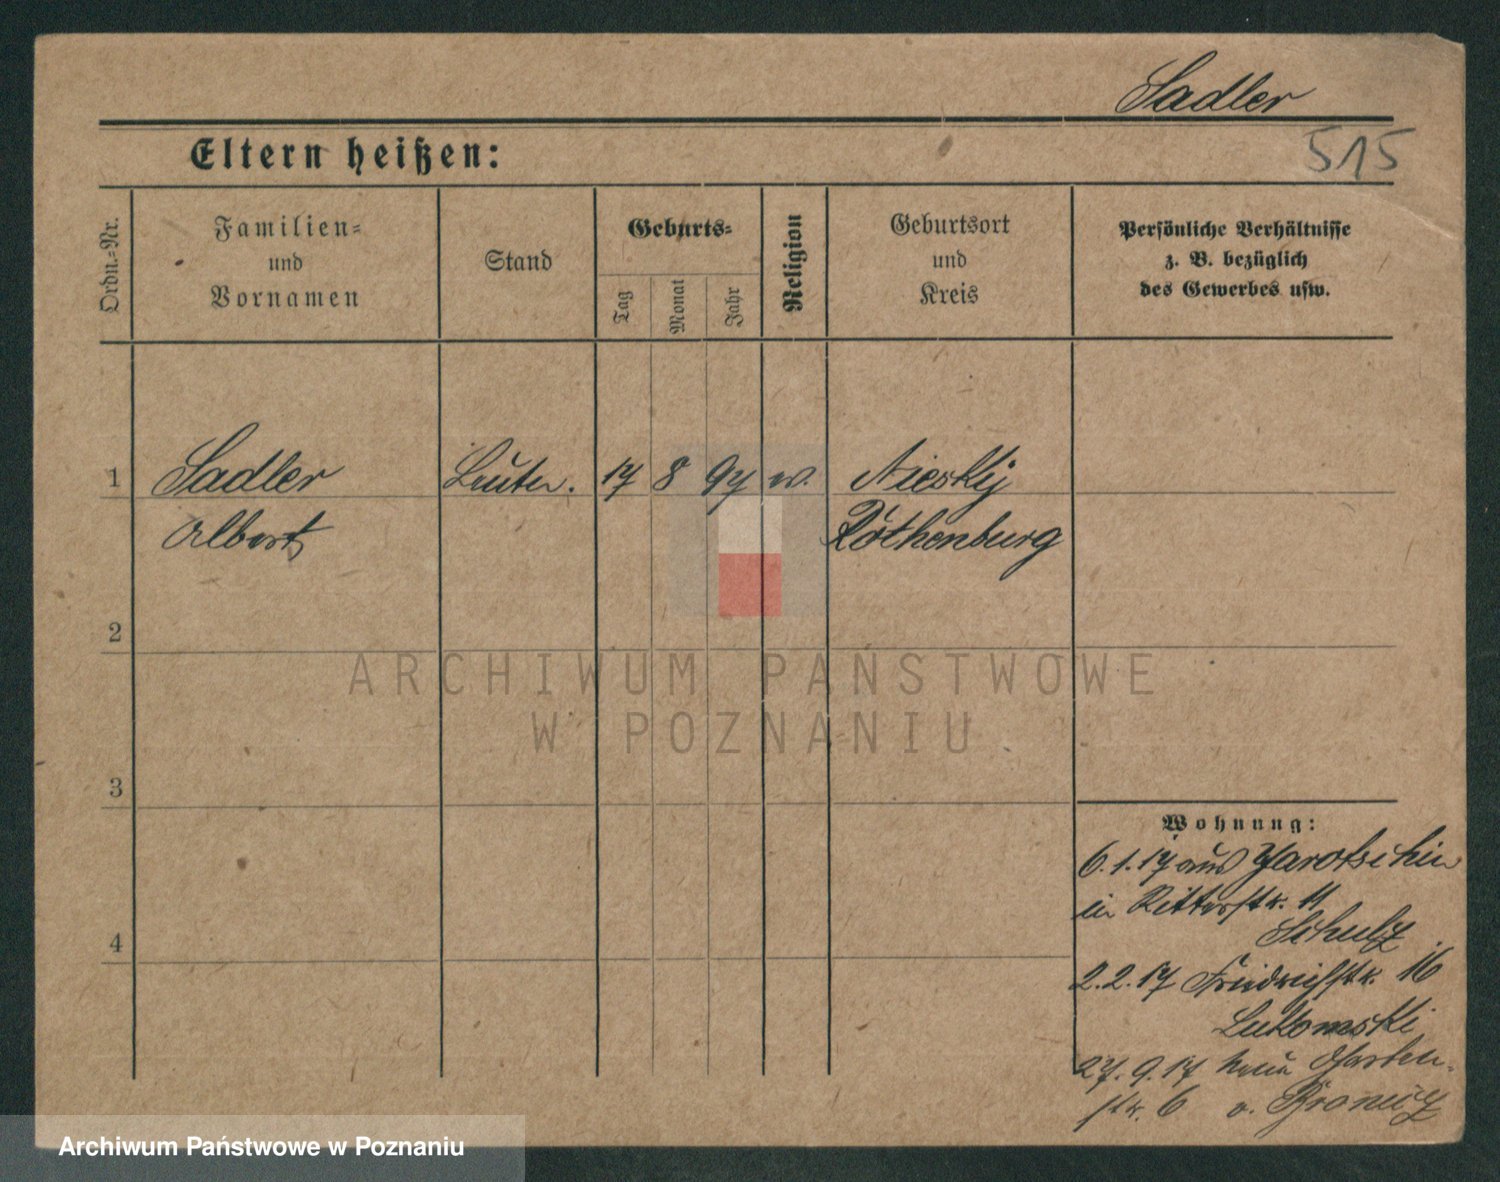 Sadler
515
Eltern heißen:
Ordn.-Nr.
Familien-
und
Vornamen
Stand
Geburts-
Tag
Monat
Jahr
Religion
Geburtsort
und
Kreis
Persönliche Verhältnisse
z. B. bezüglich
des Gewerbes usw.
1
Sadler
Leutn.
17
8
97
Niesky
Albert
Rothenburg
2
3
4
Wohnung:
6.1.17 aus Jarotschin
in Ritterstr. 11
Schulz
2.2.17 Friedrichstr. 16
Lukomski
27.9.17 Garten-
str. 6 v.
ARCHIWUM PAŃSTWOWE
W POZNANIU
Archiwum Państwowe w Poznaniu